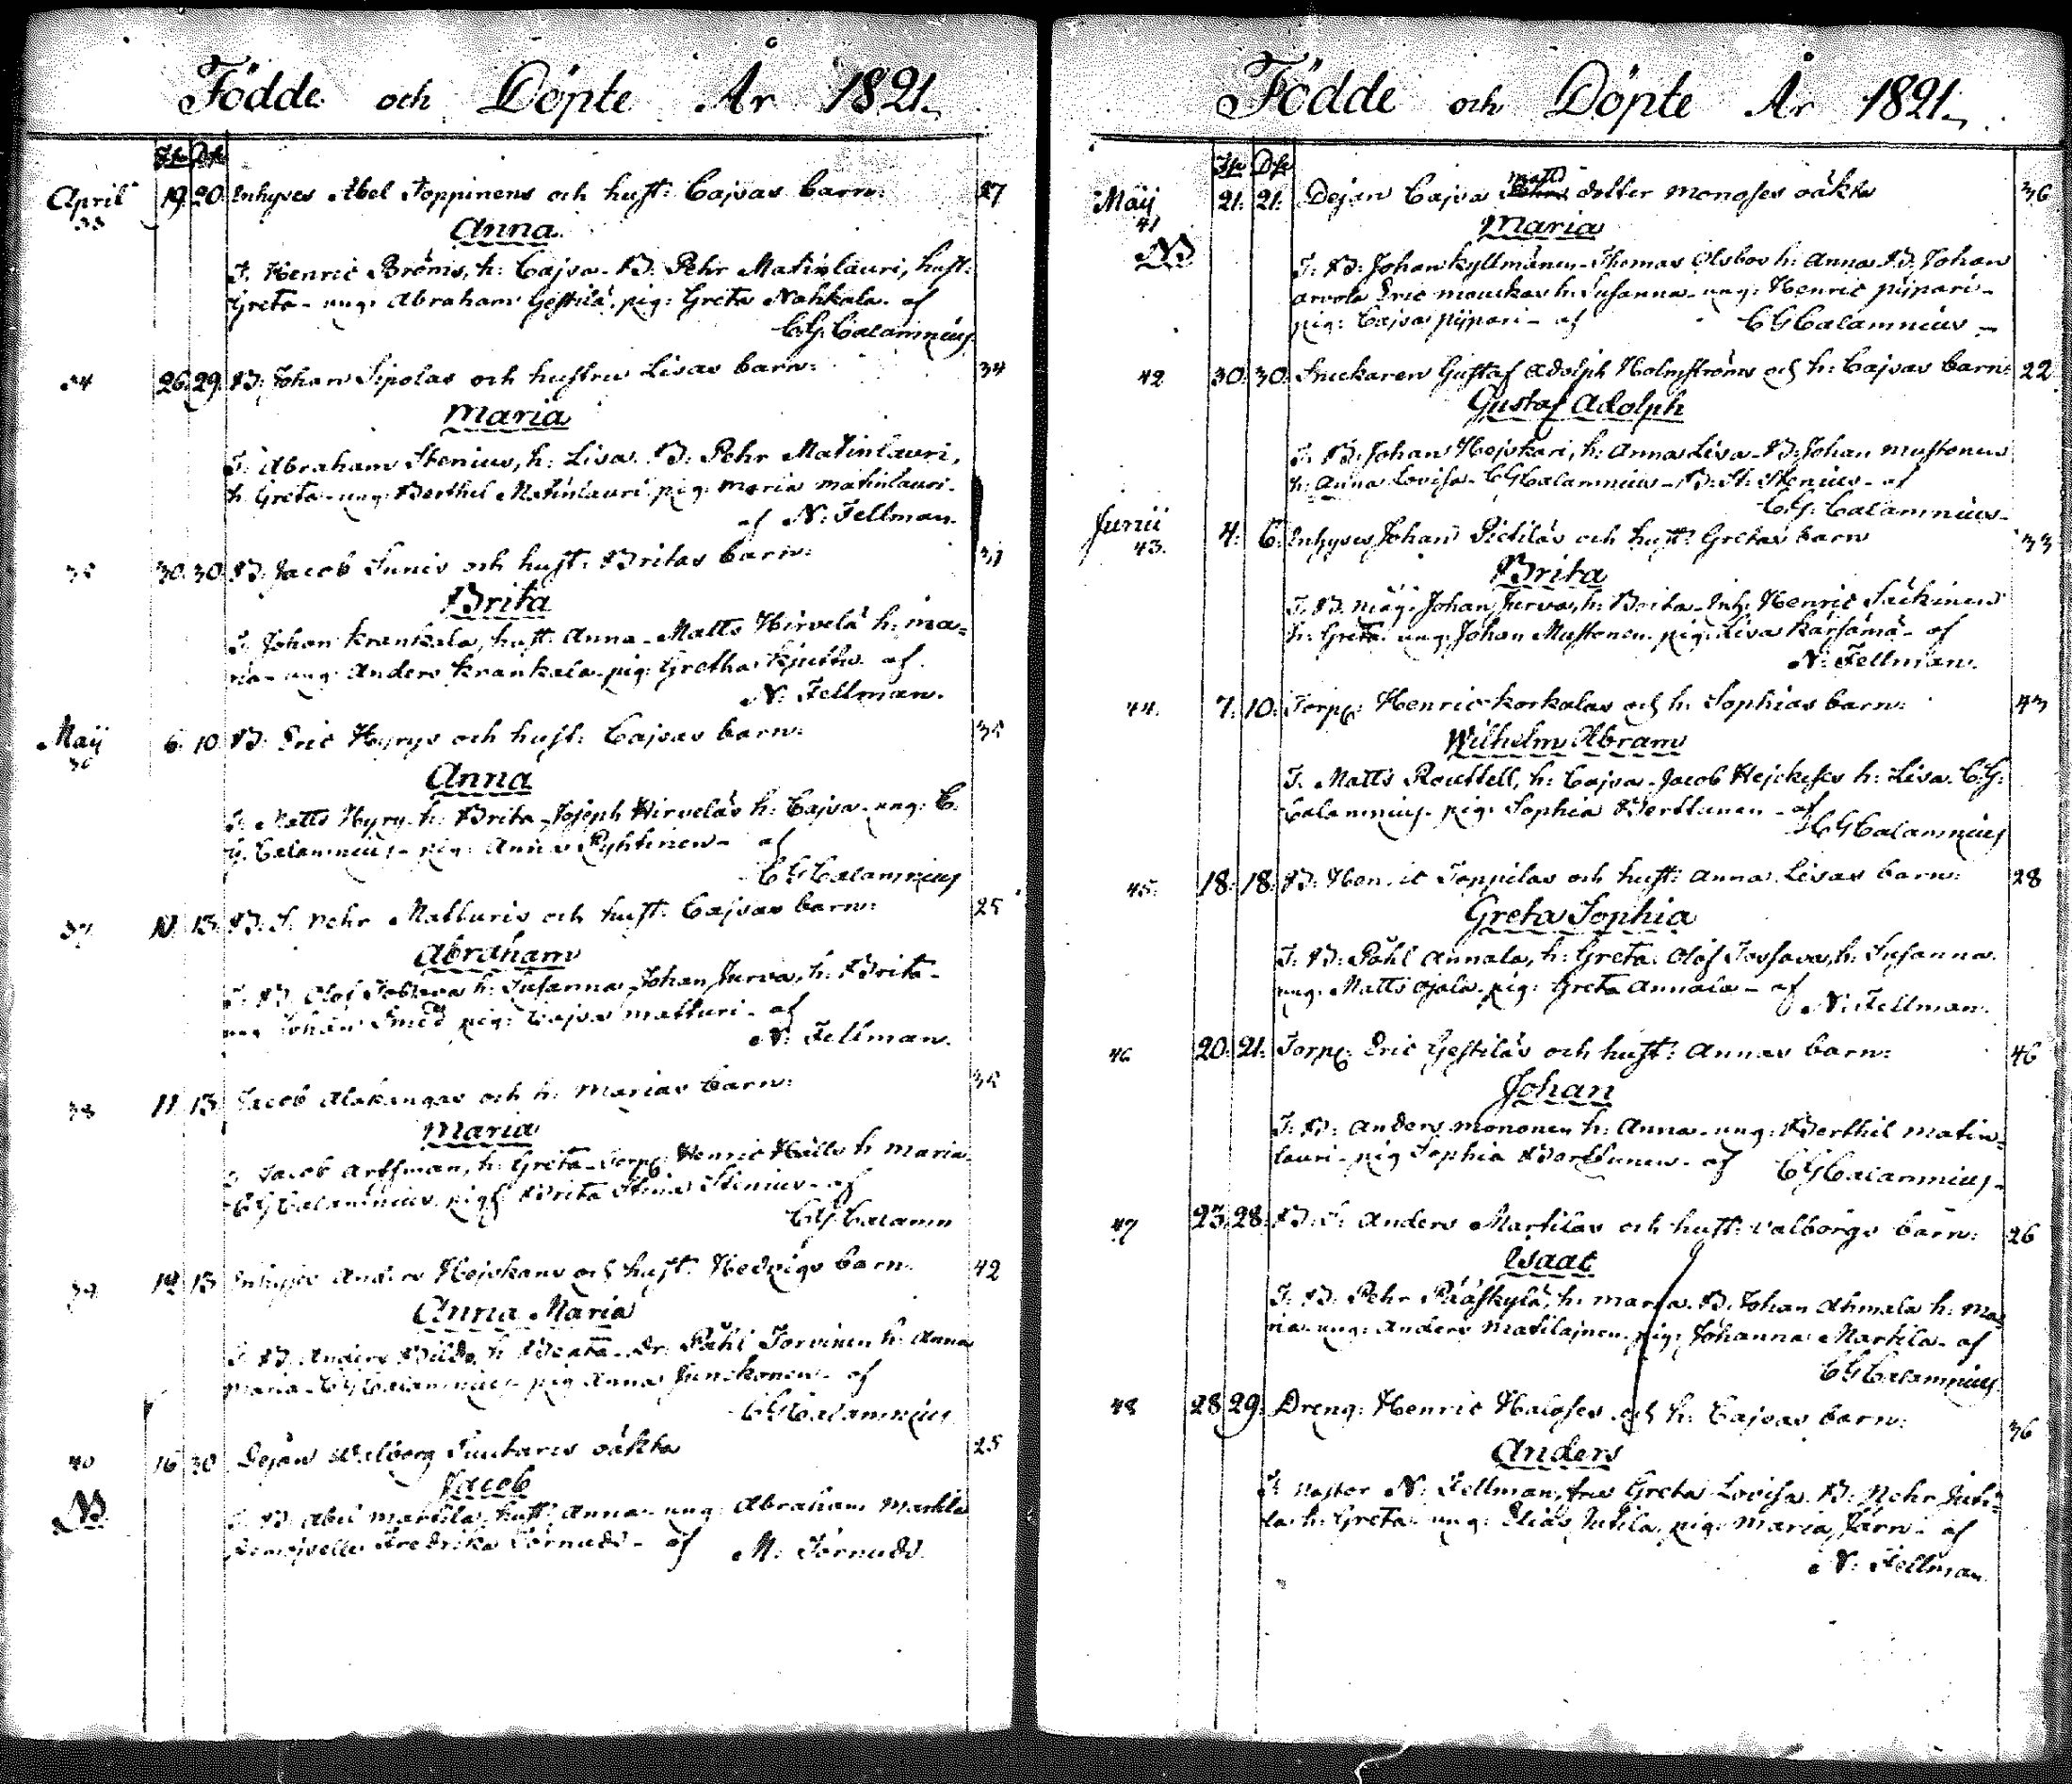 Födde och Döpte År 1821.
April 19. 20. Inhyses Abel Toppinens och hust: Cajsas barn: 27
33
Anna
T. Henric Bröms, h: Cajsa. B: Pehr Matinlauri, hust:
Greta - ung: Abraham Gestilä, pig: Greta Nahkala. af
C.G. Calamnius
34 26. 29. B: Johan Sipolas och hustru Lisas barn: 34
Maria
T: Abraham Stenius, h: Lisa. B: Pehr Matinlauri,
h: Greta - ung: Berthil Matinlauri pig: Maria Matinlauri.
af N: Fellman.
35 30. 30. B: Jacob Sunis och hust: Britas barn: 31
Brita
T. Johan Krankala, hust: Anna - Matts Hirvelä h: Ma=
ria - ung: Anders Krankala. pig: Gretha af
N: Fellman.
Maij 6. 10. B: Eric Hyrys och hust: Cajsas barn: 35
36
Anna
T. Matts Hyry. h: Brita - Joseph Hirveläs h: Cajsa. ung: C.
G. Calamnius - pig: Anna Ryhtinen - af
C G Calamnius
37 11. 13. B. S. Pehr Matturis och hust: Cajsas barn: 25
Abraham
T. B. Olof h: Susanna Johan Jurva, h: Brita -
ung Johan Smed pig: Cajsa Matturi - af
N: Fellman.
38 11. 13. Jacob Alakangas och h: Marias barn: 35
Maria
T. Jacob Artfman, h: Greta - Torp: Henric h Maria
C G Calamnius. pig: Brita Stina Stenius - af
C.G. Calamn
39 12 13 Inhyses Anders Hejskans och hust: Hedvigs barn: 42
Anna Maria
T. B: Anders h Beata - Dr: Påhl Torvinen h: Anna
Maria - C G Calamnius - pig Anna Junckonen - af
C G Calamnius
40 16 30 Dejan Walborg Suutaris oäkta 25
Jacob
NB
T. B: Abel Martila, hust: Anna - ung: Abraham Martila
Fredrika Törnudd - af M: Törnudd.
Födde och Döpte År 1821.
Maij 21. 21. Dejan Cajsa Matts dotter Monoses oäkta 36
41
Maria
NB
T. B: Johan Kyllmänen - Thomas Olsbos h: Anna. B: Johan
Arvola Eric h: Susanna - ung: Henric Pijpari -
pig: Cajsa Pijpari - af C G Calamnius -
42 30. 30. Snickaren Gustaf Adolph Holmströms och h: Cajsas barn: 22
Gustaf Adolph
T. B: Johan Hejskari, h: Anna Lisa - B: Johan Mustonens
h: Anna Lovisa - C G Calamnius - B: St: Stenius - af
C.G. Calamnius -
Junii 4. 6. Inhyses Johan Pietiläs och hust: Gretas barn 33
43.
Brita
T. B. Mäg: Johan Jurva, h: Brita - Inh: Henric Säckinens
h: Greta - ung: Johan Mustonen. pig: Lisa Kärsämä - af
N: Fellman.
44. 7. 10. Torp: Henric Korkalas och h: Sophias barn: 43
Wilhelm Abram
T. Matts Roustell, h: Cajsa. Jacob Hejckeses h: Lisa. C.G:
Calamnius - pig: Sophia Berttunen - af
C G Calamnius
45. 18. 18. B: Henric Toppilas och hust: Anna Lisas barn: 28
Greta Sophia
T: B: Påhl Annala, h: Greta. Olof h: Susanna.
ung: Matts Ojala. pig: Greta Annala - af
N: Fellman.
46 20. 21. Torp: Eric Gestiläs och hust: Annas barn: 46
Johan
T. B: Anders Mononen h: Anna - ung: Berthil Matin=
lauri - pig Sophia Berttunen - af C G Calamnius -
47 23. 28. B: S: Anders Martilas och hust: Valborgs barn: 26
Isaac
T: B: Pehr Pääskylä, h: Maria. B. Johan Ahmala h: Ma=
ria - ung: Anders Matilajnen. pig: Johanna Martila - af
C G Calamnius
48 28 29. Dreng: Henric Haloses och h: Cajsas barn: 36
Anders
T. Pastor N: Fellman, fru Greta Lovisa. B: Pehr Juti=
la h: Greta - ung: Elias Jutila. pig: Maria Järvi - af
N: Fellman